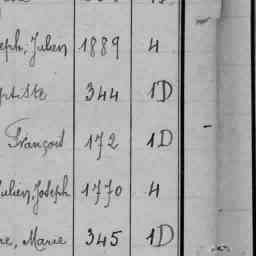 eph, Julien 1889 4
ptiste 344 1D
François 172 1D
Julien, Joseph 1770 4
re, Marie 345 1D